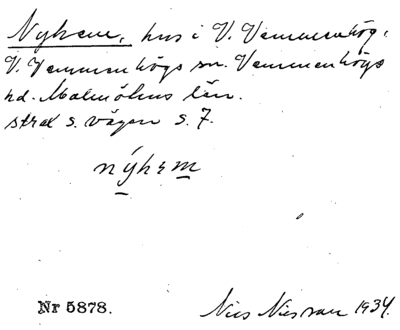 Nyhem, hus i V. Vemmenhög,
V. Vemmenhögs sn. Vemmenhögs
hd. Malmöhus län.
strax s. vägen s. 7.
nýhɛm
Nr 5878.
Nils Nilsson 1934.